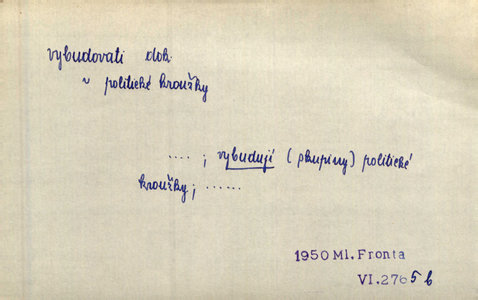 vybudovati dok.
~ politické kroužky
.... ; vybudují (skupiny) politické
kroužky; ......
1950 Ml. Fronta
VI.276 5 b